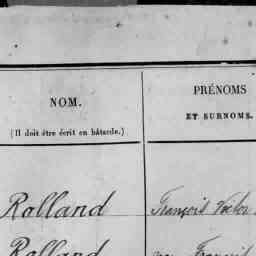 NOM.
(Il doit être écrit en bâtarde.)
PRÉNOMS
ET SURNOMS.
Rolland
François Victor
Rolland
François